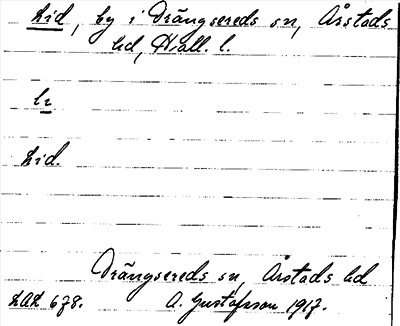 Lid, by i Drängsereds sn, Årstads
hd, Hall. l.
li
Lid.
Drängsereds sn, Årstads hd
LAL 678. A. Gustafsson 1917.